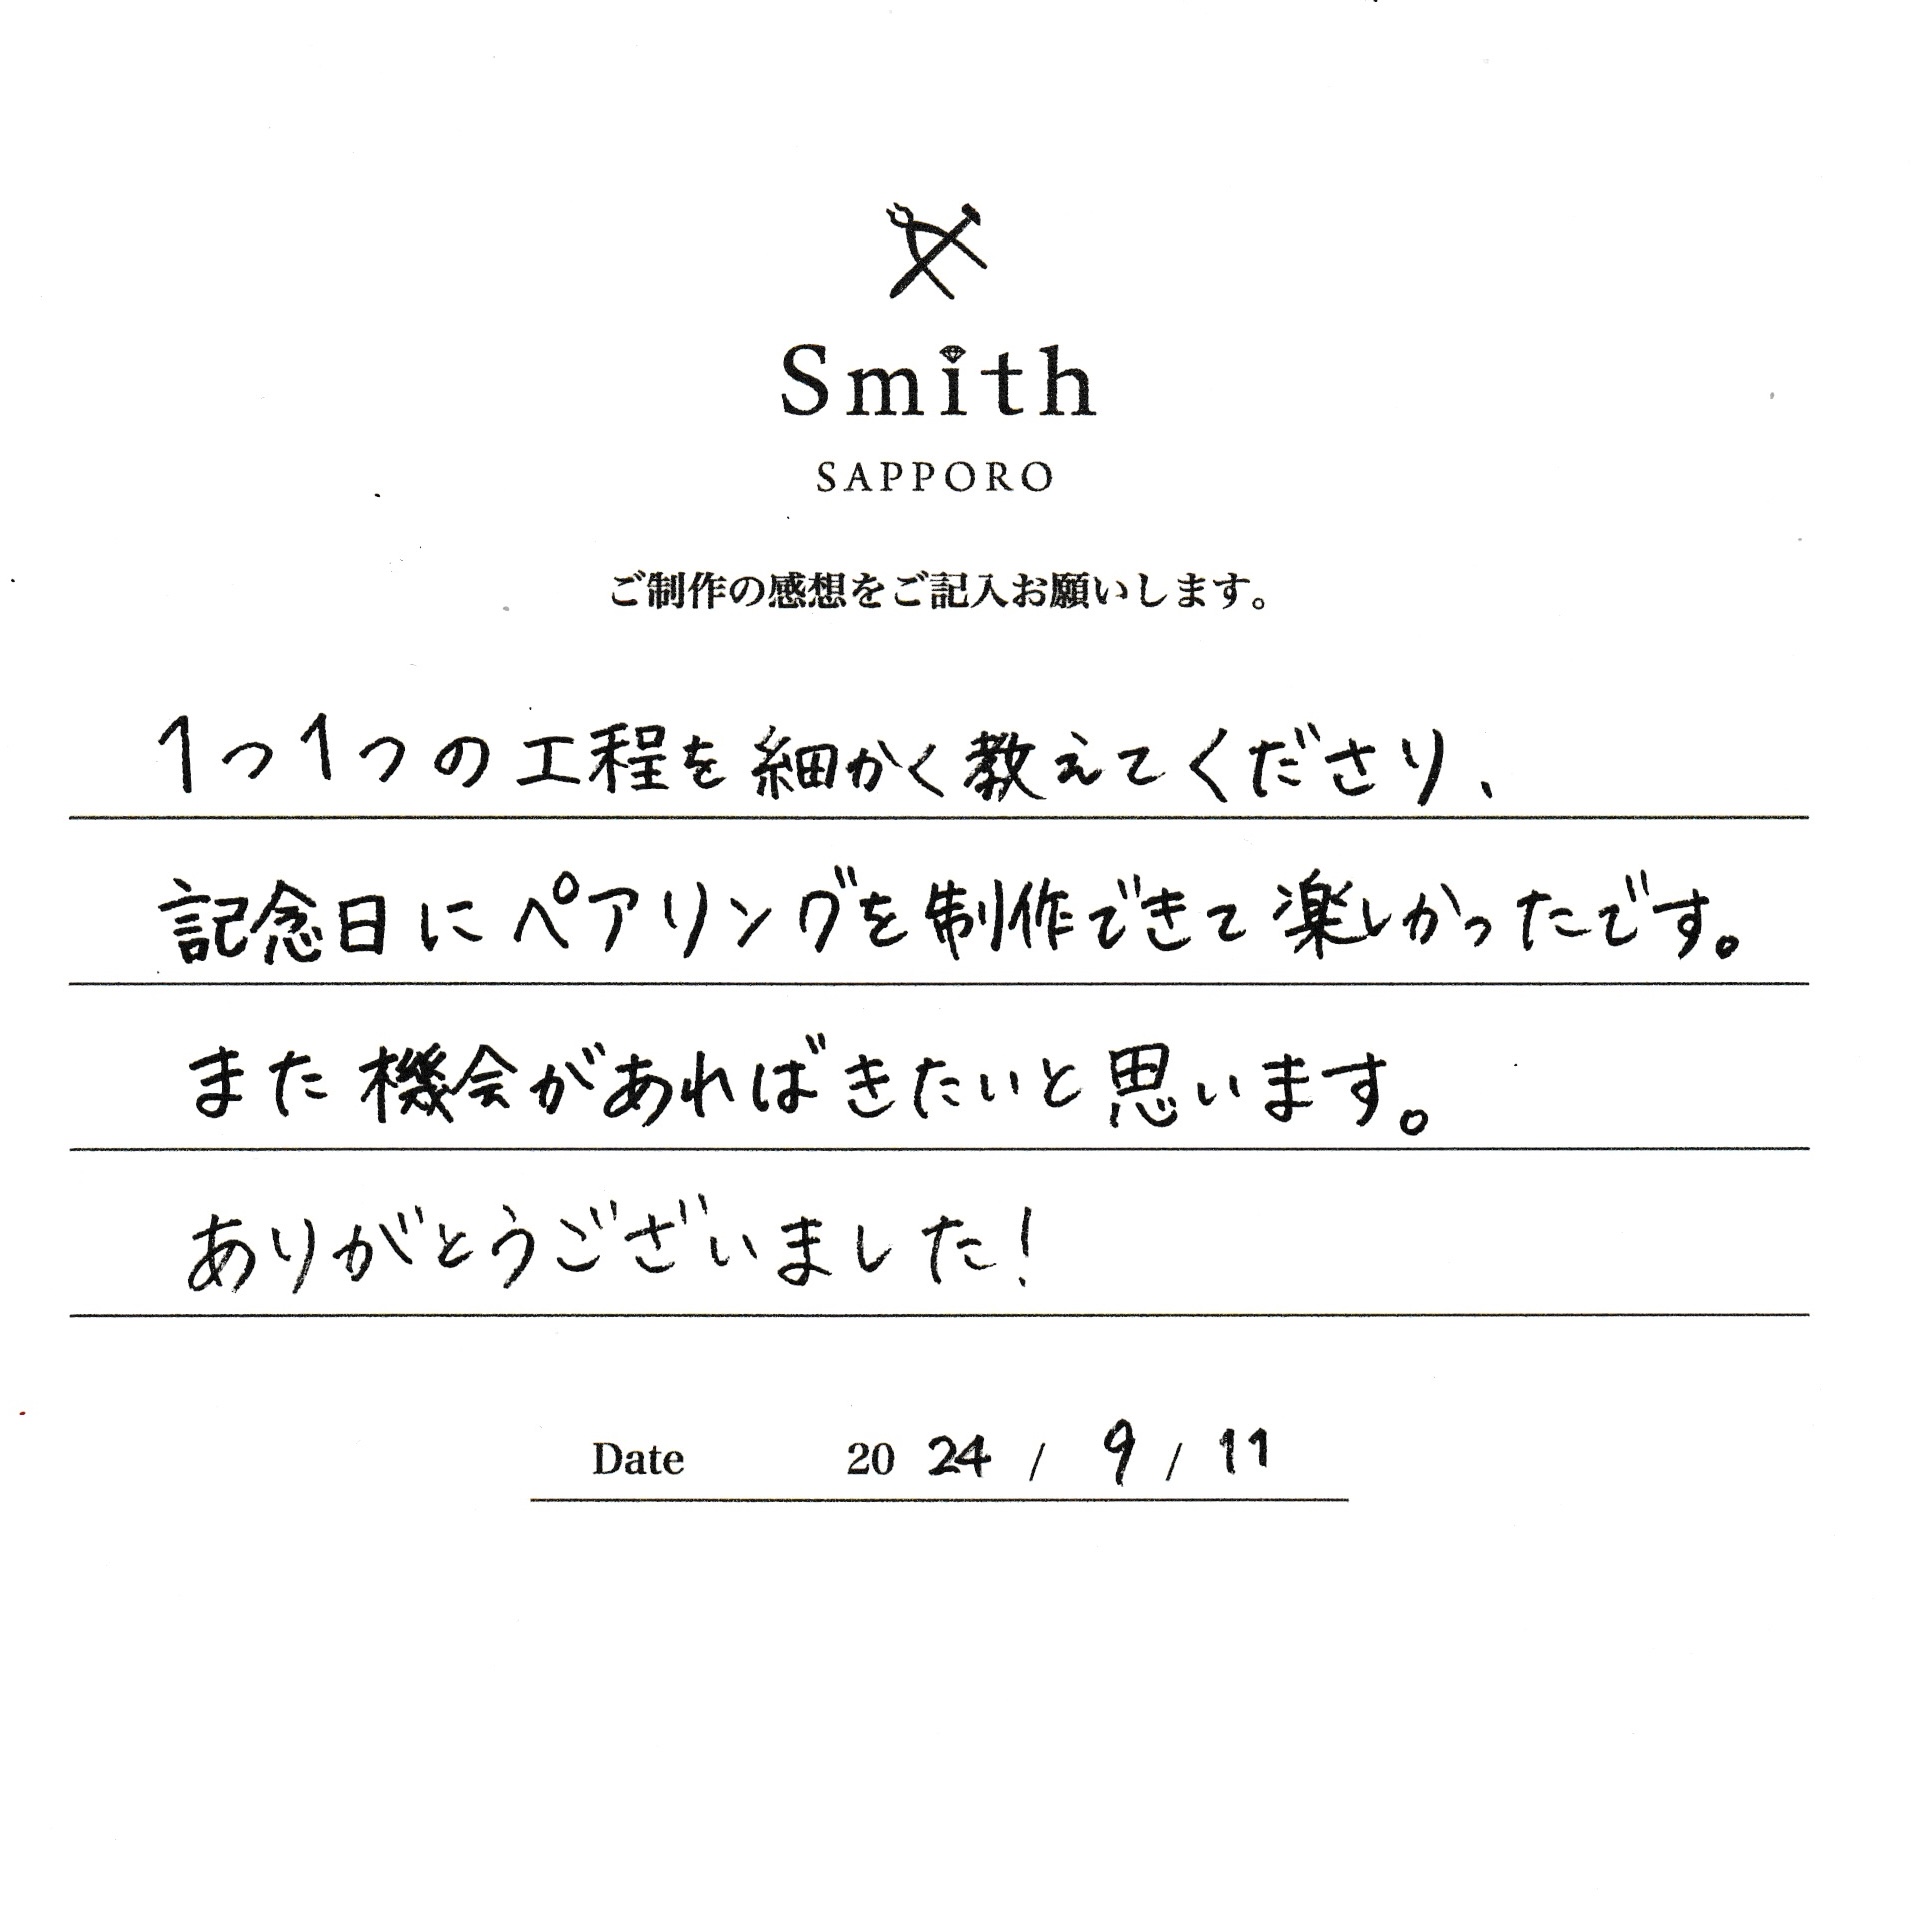 Smith
SAPPORO
ご制作の感想をご記入お願いします。
1つ1つの工程を細かく教えてくださり、
記念日にペアリングを制作できて楽しかったです。
また機会があればきたいと思います。
ありがとうございました!
Date 2024 / 9 / 11